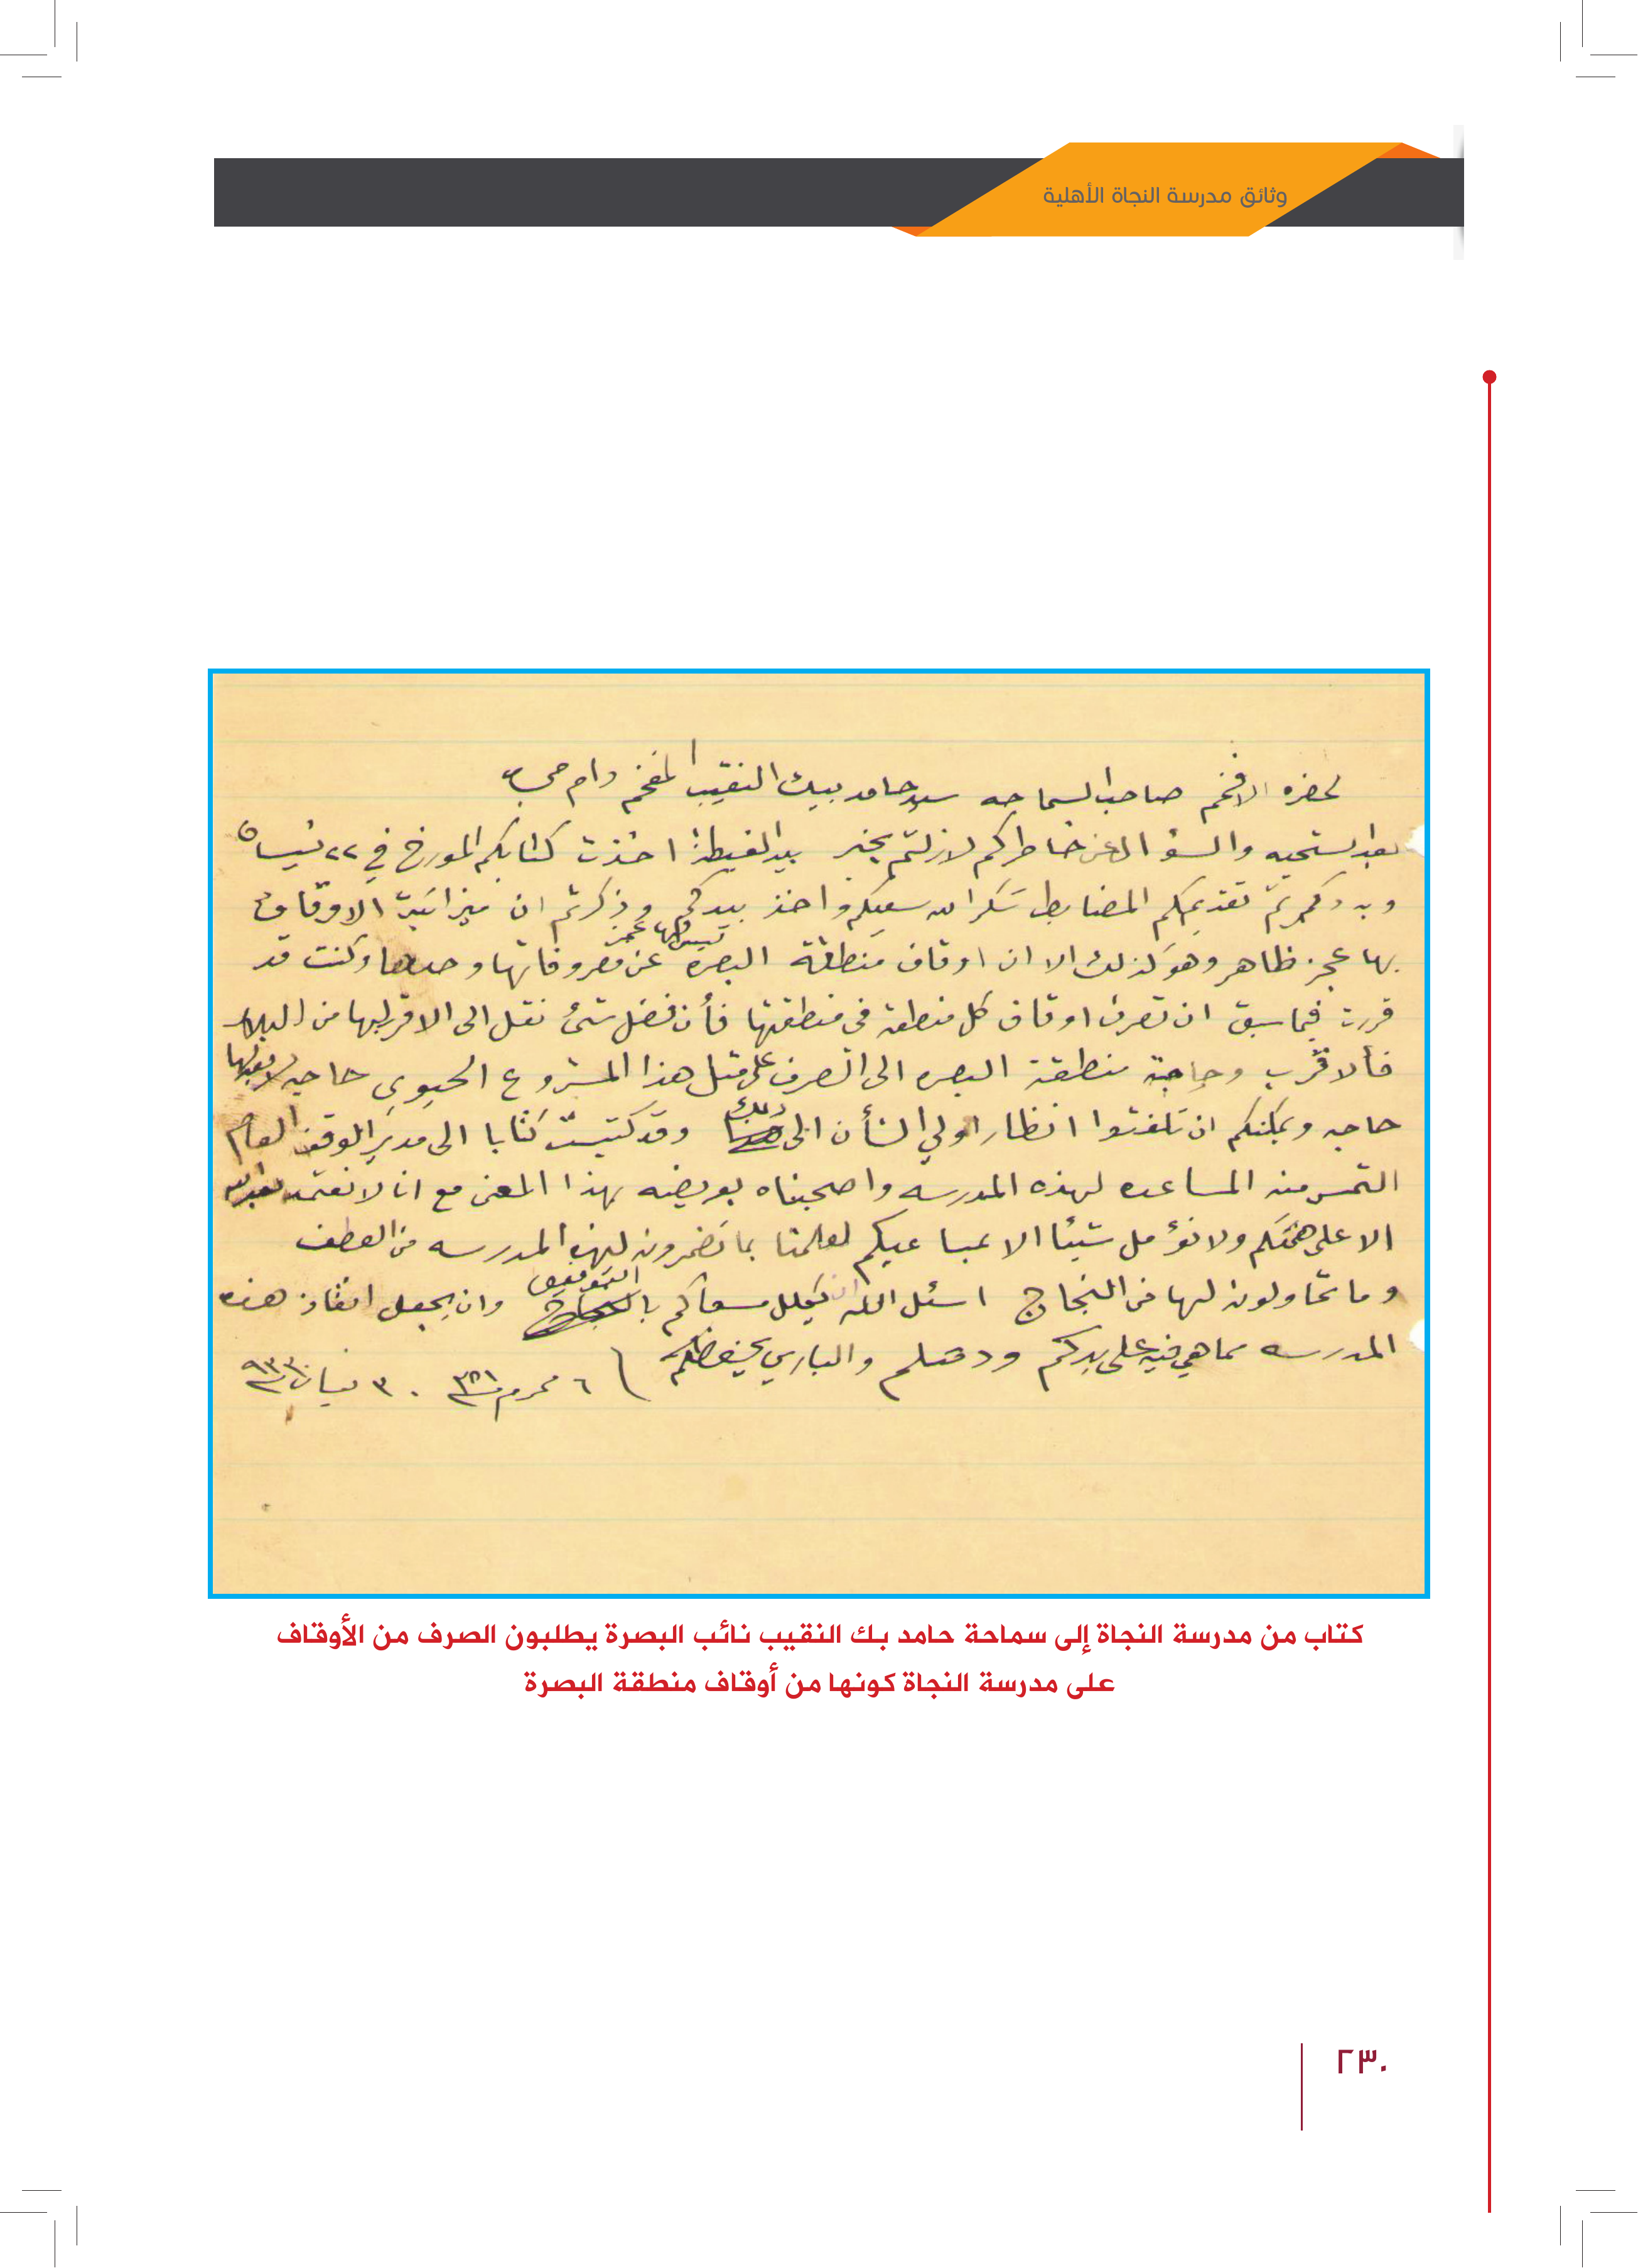 وثائق مدرسة النجاة الأهلية
لحضرة الافخم صاحب السماحه سيد حامد بيك النقيب المفخم دام مجده
بعد التحيه والسؤال عن خاطركم لازلتم بخير بيد الغبطة اخذت كتابكم المورخ في ٢٢ نيسان
تقديمكم المضابط شكر الله سعيكم واخذ بيدكم وذكرتم ان ميزانية الاوقاف
بها عجز ظاهر وهو كذلك الا ان اوقاف منطقة البصرة ليس بها عجز عن مصروفاتها وحدها وكنت قد
قررت فيما سبق ان تصرف اوقاف كل منطقة في منطقتها فأن فضل شئ نقل الى الاقرب اليها من البلاد
فألاقرب وحاجة منطقة البصره الى الصرف على مثل هذا المشروع الحيوي حاجه لا بعدها
حاجه ويمكنكم ان تلفتوا انظار اولي الشأن الى ذلك وقد كتبت كتابا الى مدير الوقف العام
التمس منه المساعده لهذه المدرسه واصحبناه بعريضه بهذا المعنى مع انا لا نعتمد بعد الله
الا على همتكم ولا نؤمل شيئا الا بمساعيكم لعلمنا بما تضمرون لهذه المدرسه من العطف
وما تحاولون لها من النجاح اسئل الله ان يكلل مسعاكم بالتوفيق وان يجعل انقاذ هذه
المدرسه مما هي فيه على يدكم ودمتم والباري يحفظكم ٦ محرم ٣٠ نيسان ٩٣٣
كتاب من مدرسة النجاة إلى سماحة حامد بك النقيب نائب البصرة يطلبون الصرف من الأوقاف
على مدرسة النجاة كونها من أوقاف منطقة البصرة
٢٣٠